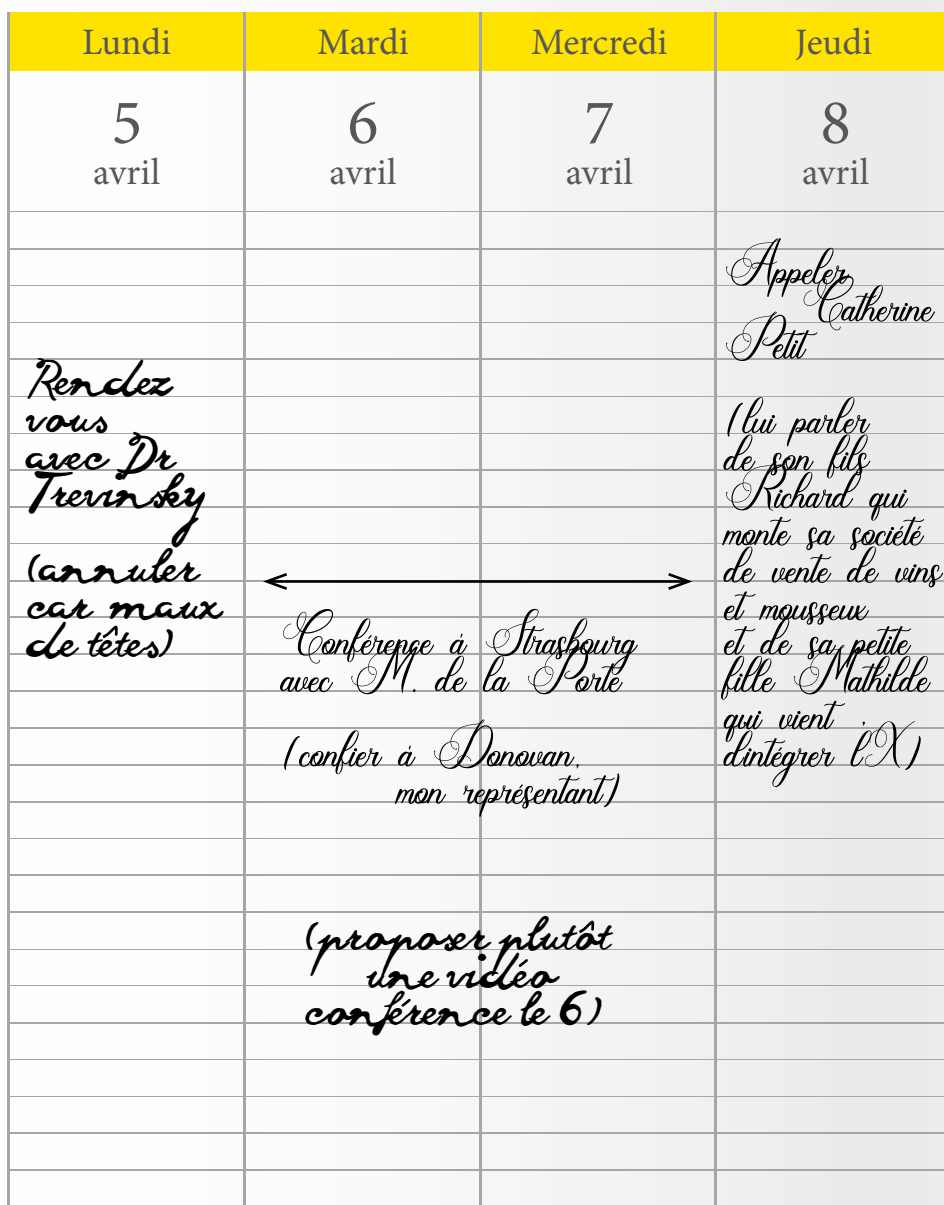 Lundi
5
avril
Rendez
vous
avec Dr
Trevinsky
(annuler
car maux
de têtes)
Mardi
6
avril
Mercredi
7
avril
Conférence à Strasbourg
avec M. de la Porte
(confier à Donovan,
mon représentant)
(proposer plutôt
une vidéo
conférence le 6)
Jeudi
8
avril
Appeler
Catherine
Petit
(lui parler
de son fils
Richard qui
monte sa société
de vente de vins
et mousseux
et de sa petite
fille Mathilde
qui vient
d'intégrer l'X)